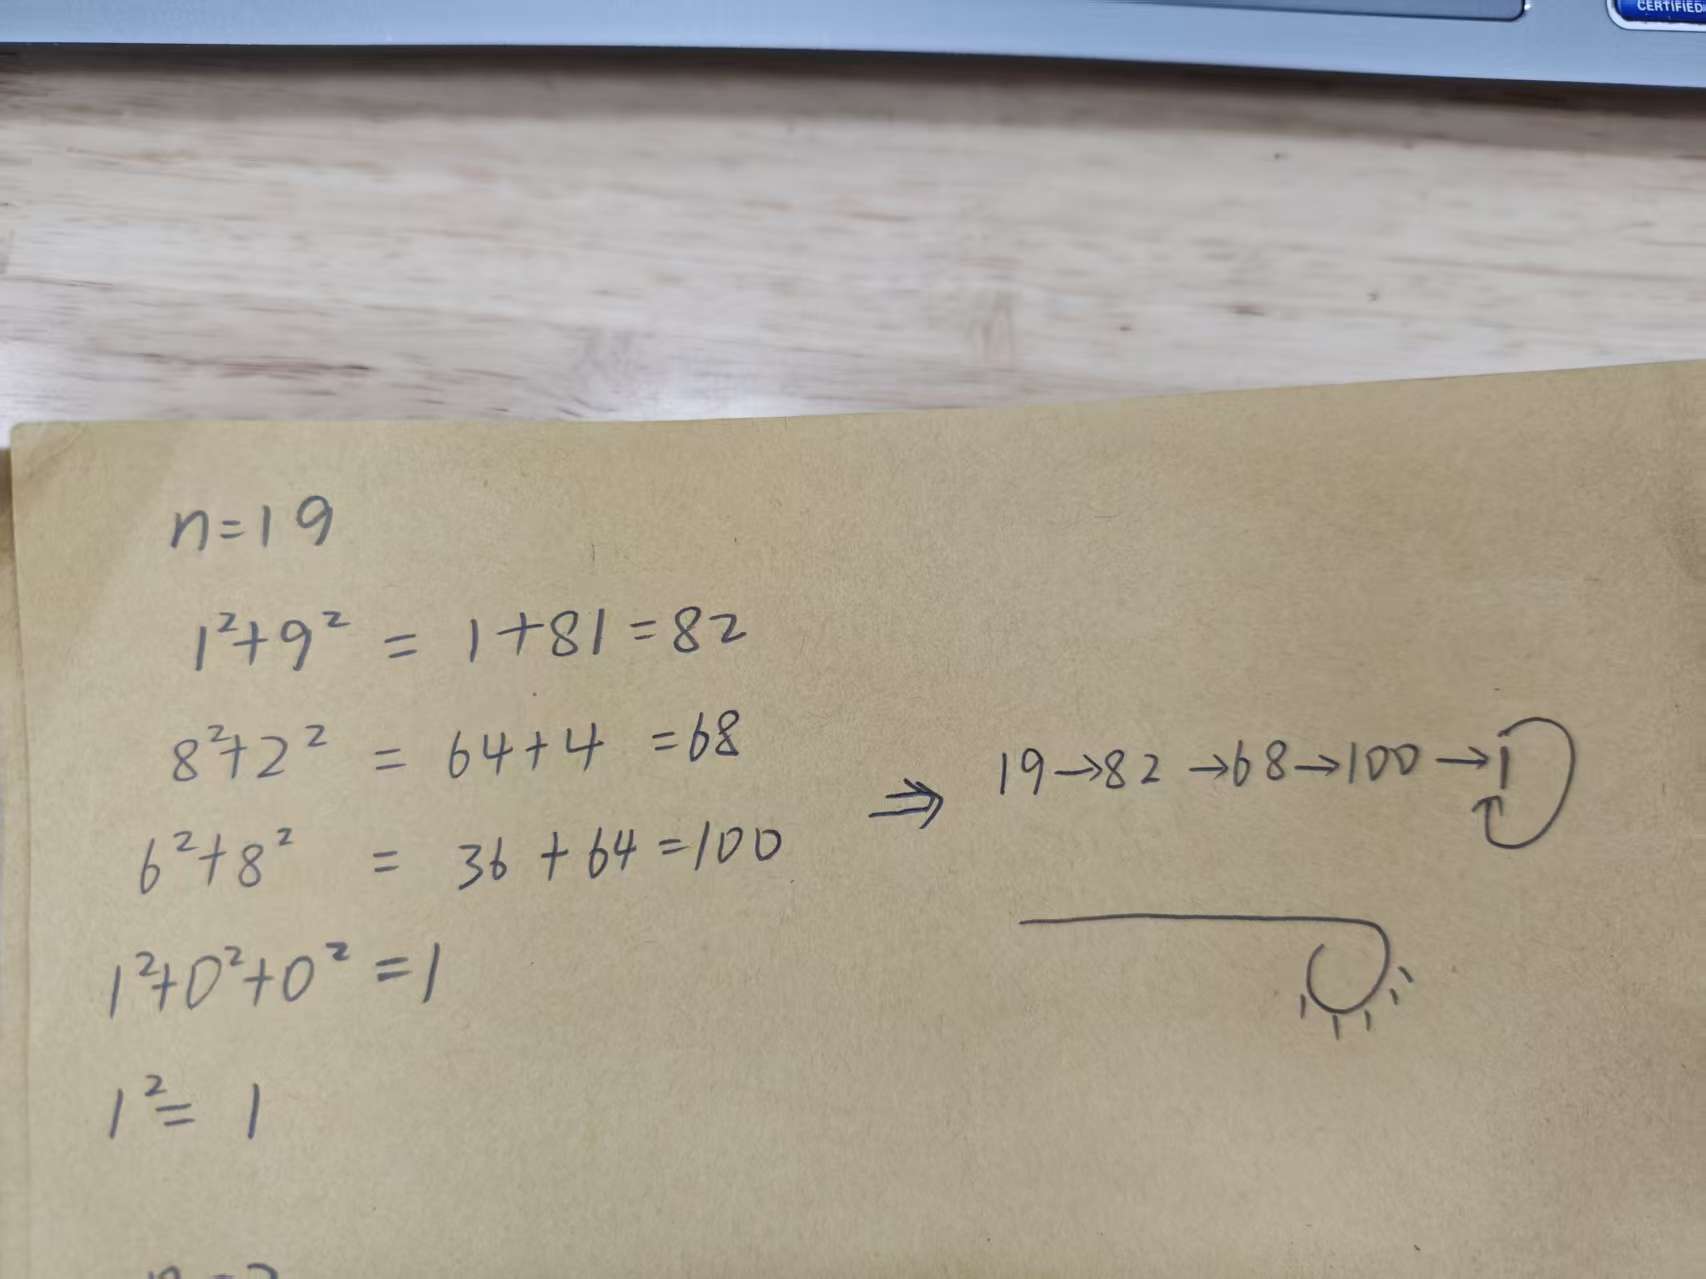 CERTIFIED
n=19
1²+9² = 1+81=82
8²+2² = 64+4 =68
6²+8² = 36+64=100
1²+0²+0²=1
1²= 1
⇒ 19→82→68→100→1